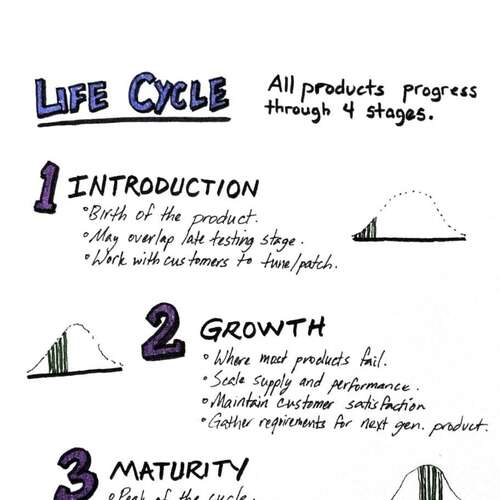 LIFE CYCLE
All products progress
through 4 stages.
1 INTRODUCTION
• Birth of the product.
• May overlap late testing stage.
• Work with customers to tune/patch.
2 GROWTH
• Where most products fail.
• Scale supply and performance.
• Maintain customer satisfaction
• Gather requirements for next gen. product.
3 MATURITY
• Peak of the cycle.